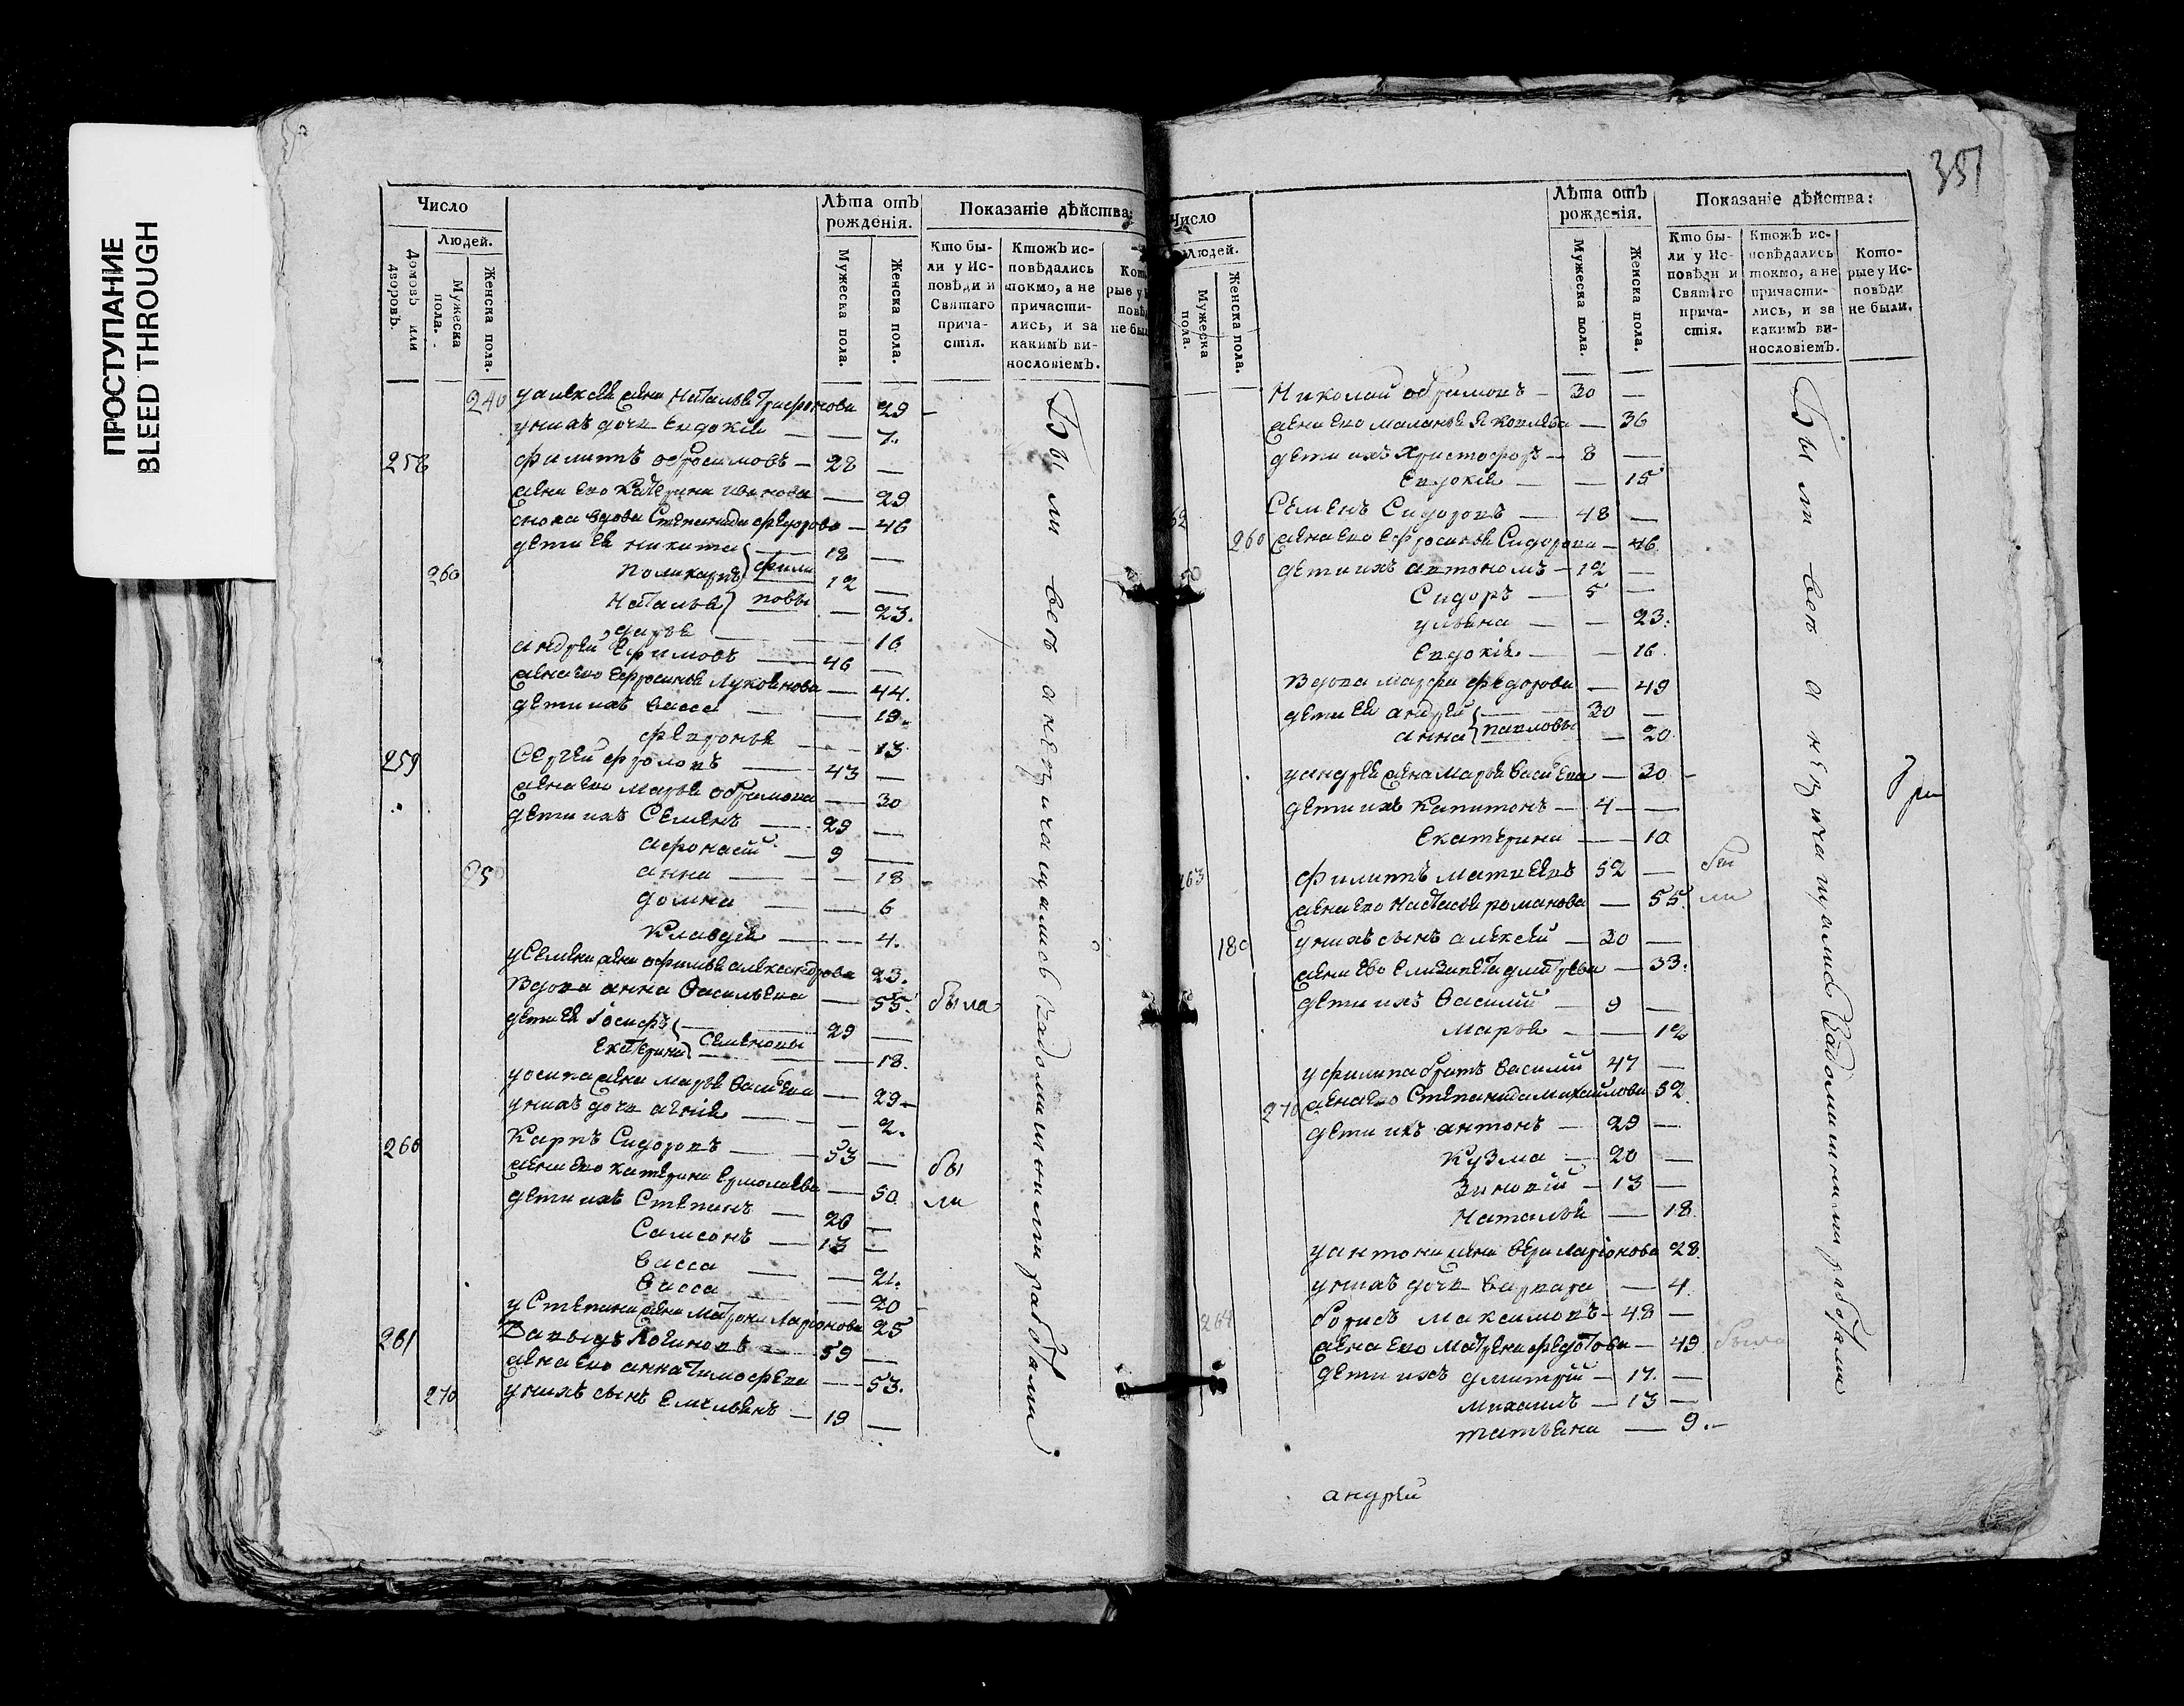 ПРОСТУПАНИЕ
BLEED THROUGH
351
Число
Людей.
Домовъ или дворовъ.
Мужеска пола.
Женска пола.
Лѣта отъ рожденія.
Мужеска пола.
Женска пола.
Показаніе дѣйства:
Кто бы-
ли у Ис-
повѣди и
Святаго
прича-
стія.
Ктожъ ис-
повѣдались
токмо, а не
причасти-
лись, и за
какимъ ви-
нословіемъ.
240 у алексея жена Наталья Трифонова 29
у нихъ дочь Евдокія 7
258 филиппъ ефросимовъ 28
жена ево Катерина иванова 29
сноха вдова Степанида федорова 46
дети ея никита 18
260 поликарпъ филиповы 12
Наталья 23.
дарья 16
андрей Ефимовъ 46
жена ево Ефросинья Лукоянова 44.
дети ихъ васса 19
февронья 13
259 Сергей фроловъ 43
жена ево марья обрамова 30
дети ихъ Семенъ 29
афонасий 9
250 анна 18
домна 6
Клавдея 4.
у Семена жена афимья александрова 23.
Вдова анна Васильева 55. была
дети ея Иосифъ Семеновы 29
Екатерина 18.
у осипа жена марья Васильева 29
у нихъ дочь агнія 2.
260 Карпъ Сидоровъ 53 бы
жена ево катерина Ермолаева 50 ли
дети ихъ Степанъ 20
Самсонъ 13
Васса 21.
Васса 20
у Степана жена матрона Ларіонова 25
261 Давыдъ Логиновъ 59
жена ево анна Тимофеева 53.
270 у нихъ сынъ Емельянъ 19
Были все а не причащались за домашними работами
Число
Людей.
Мужеска пола.
Женска пола.
Лѣта отъ рожденія.
Мужеска пола.
Женска пола.
Показаніе дѣйства:
Кто бы-
ли у Ис-
повѣди и
Святаго
прича-
стія.
Ктожъ ис-
повѣдались
токмо, а не
причасти-
лись, и за
какимъ ви-
нословіемъ.
Кото-
рые у Ис-
повѣди
не были.
Николай обрамовъ 30
жена ево маланья Яковлева 36
дети ихъ Христофоръ 8
Евдокія 15
62 Семенъ Сидоровъ 48
260 жена ево Ефросинья Сидорова 46
дети ихъ автономъ 12
Сидоръ 5
ульяна 23.
Евдокія 16.
Вдова марфа федорова 49
дети ея андрей павловы 30
анна 20
у андрея жена марья Васильева 30
дети ихъ Капитонъ 4
Екатерина 10
263 филиппъ матвеевъ 52 бы
жена ево настасья романова 55. ли
180 у нихъ сынъ алексей 30
жена ево Елизавета дмитрева 33.
дети ихъ Василий 9
марья 12
у филипа братъ Василий 47
270 жена ево Степанида михайлова 52
дети ихъ антонъ 29
Кузма 20
Зиновій 13
Наталья 18
у антона жена вера Ларіонова 28.
у нихъ дочь варвара 4
264 борисъ максимовъ 48
жена ево матрена федотова 49 была
дети ихъ дмитрий 17.
михаилъ 13
татьяна 9.
Были все а не причащались за домашними работами
андрей